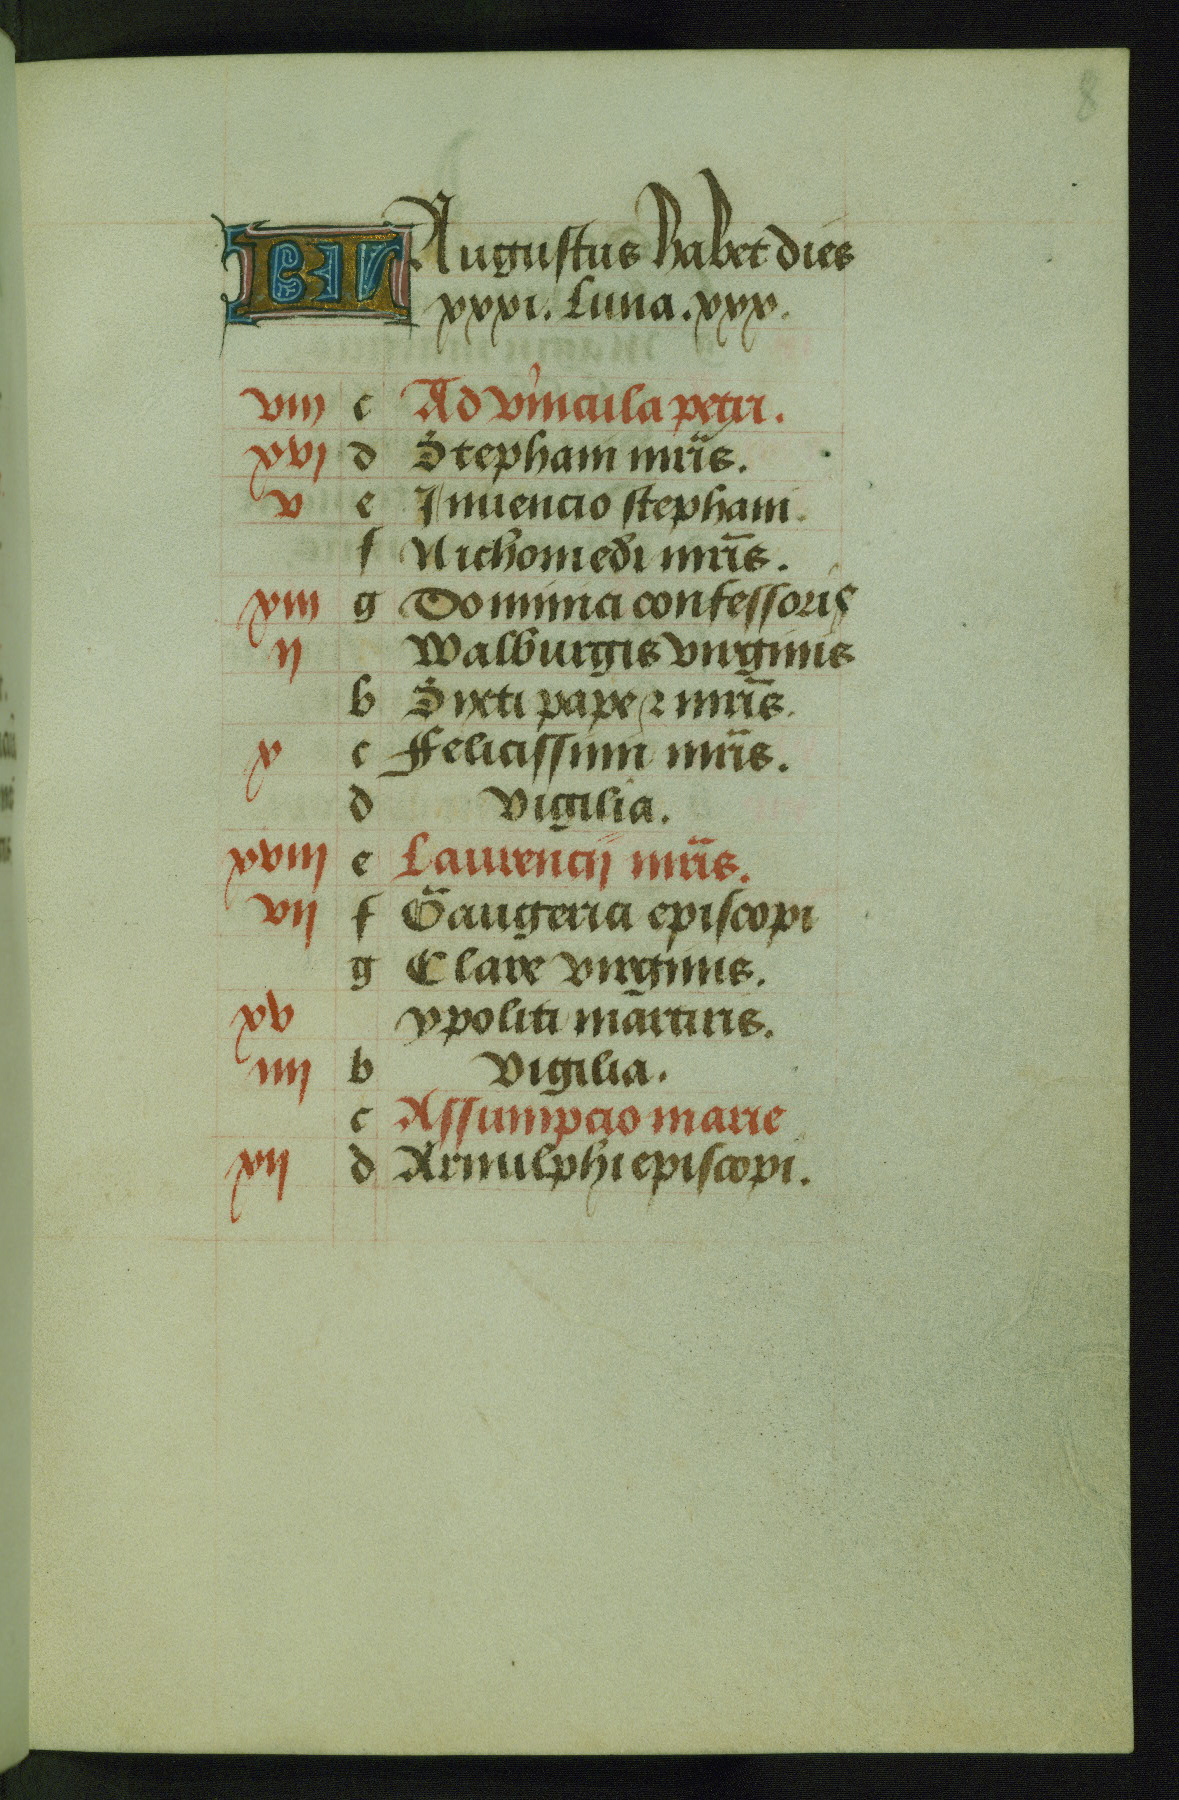 8
KL Augustus habet dies
xxxi. Luna. xxx.
viii c Ad vincula petri.
xvi d Stephani mr̄is.
v e Inuencio stephani.
f Nichomedi mr̄is.
xiii g Dominici confessoris
ii Walburgis virginis
b Sixti pape ⁊ mr̄is.
x c Felicissimi mr̄is.
d Vigilia.
xviii e Laurencij mr̄is.
vii f Gaugerici episcopi
g Clare virginis.
xv ypoliti martiris.
iiii b Vigilia.
c Assumpcio marie
xii d Arnulphi episcopi.